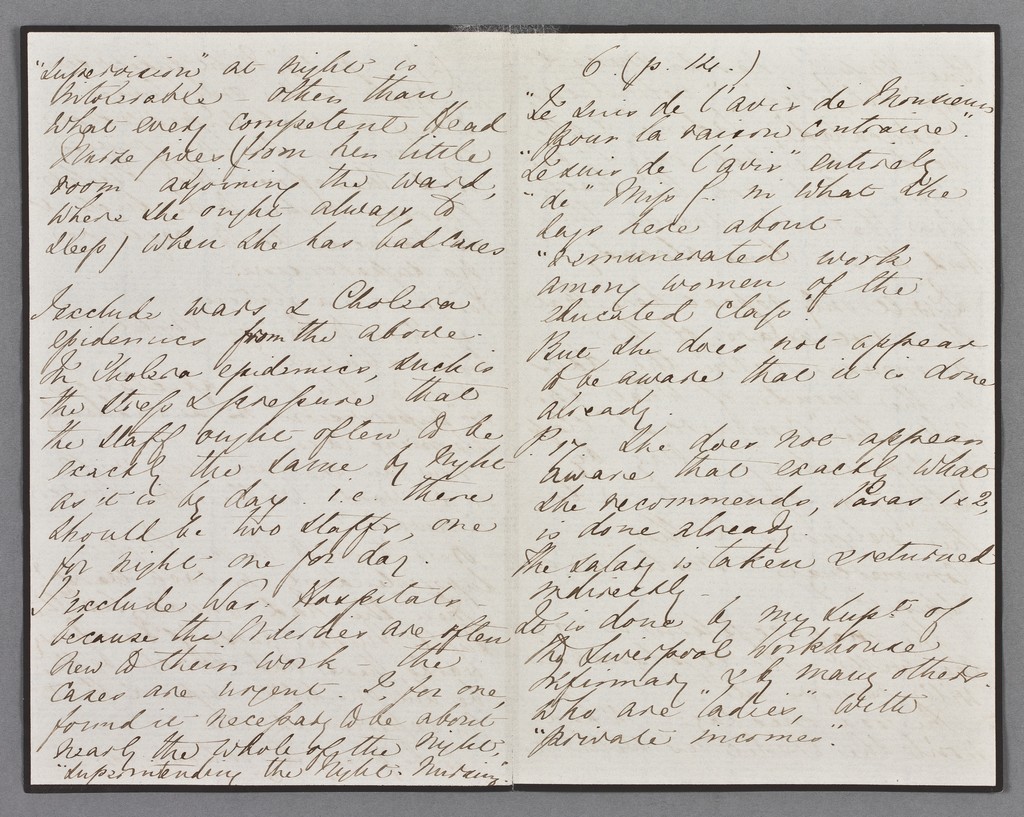 "supervision" at night is
intolerable - other than
what every competent Head
Nurse gives (from her little
room adjoining the ward,
where she ought always to
sleep) when she has bad cases
I exclude wars & Cholera
epidemics from the above.
In Cholera epidemics, such is
the stress & pressure that
the staff ought often to be
exactly the same by night
as it is by day. i.e. there
should be two staffs, one
for night, one for day.
I exclude War Hospitals -
because the Orderlies are often
new to their work - the
cases are urgent. I, for one,
found it necessary to be about
nearly the whole of the night,
"superintending the Night-Nursing".
6. (p. 14.)
"Je suis de l'avis de Monsieur
pour la raison contraire".
"Je suis de l'avis" entirely
"de" Miss in what she
says here about
"remunerated work
among women of the
educated class"
But she does not appear
to be aware that it is done
already.
P. 17 She does not appear
aware that exactly what
she recommends, Paras 1 & 2,
is done already.
The salary is taken & returned
indirectly -
It is done by my Supt of
the Liverpool Workhouse
Infirmary & by many others.
who are "ladies", with
"private incomes".